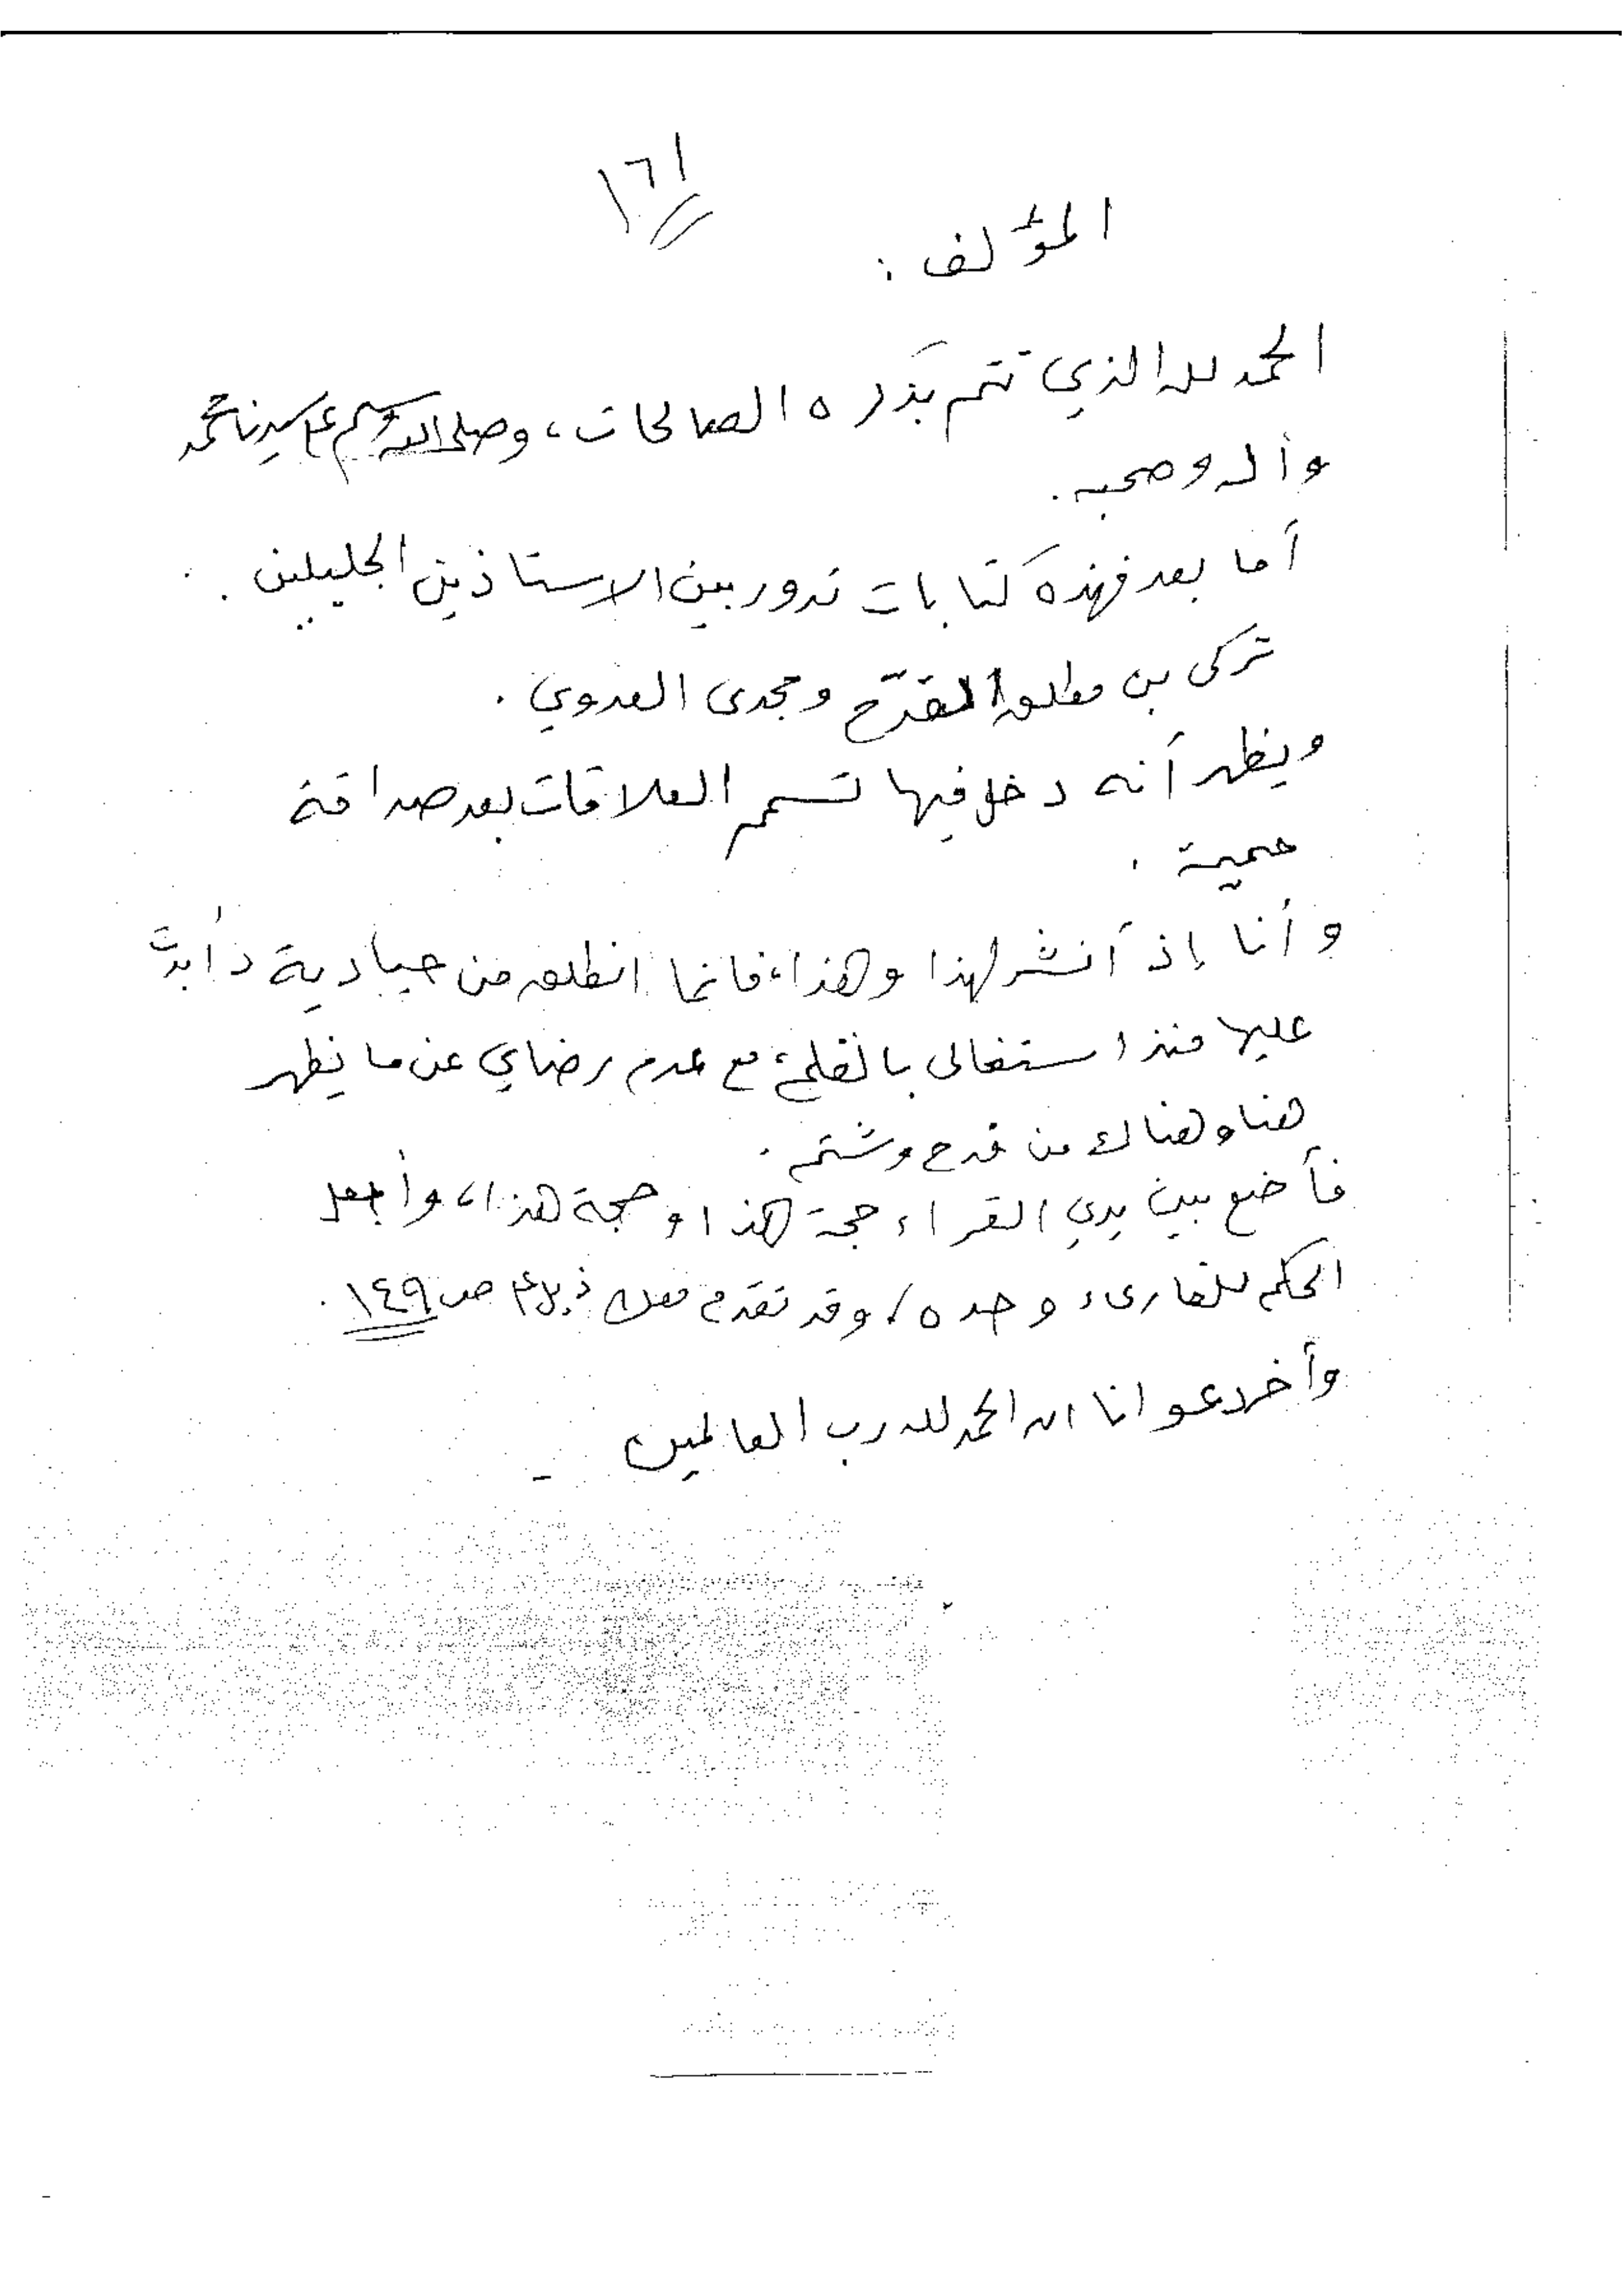 ١٦١
المؤلف :
الحمد لله الذي تتم بذكره الصالحات، وصلى الله وسلم على سيدنا محمد
وأله وصحبه .
أما بعد فهذه كتابات تدور بين الاستاذين الجليلين :
تركى بن مطلق القدّح ومجدى العدوي .
ويظهر أنه دخل فيها تسمم العلاقات بعد صداقة
حميمة .
وأنا إذ أنشر لهذا وهذا، فانما انطلق من حيادية دأبتُ
عليها منذ اشتغالى بالقلم، مع عدم رضاي عن ما يظهر
هنا وهناك من قدح وشتم .
فأضع بين يدي القراء حجة هذا وحجة هذا، وأجعل
الحكم للقارىء وحده، وقد تقدم ص ١٤٩ .
وأخر دعوانا ان الحمد لله رب العالمين -